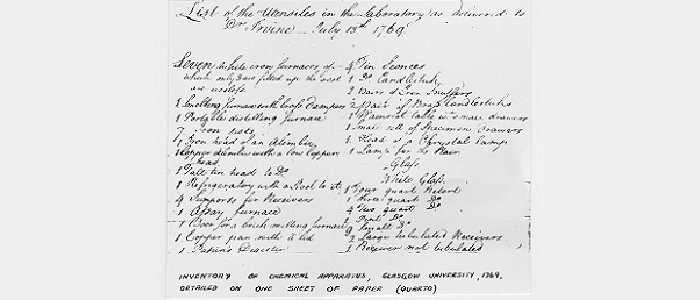 List of the Utensiles in the Laboratory as delivered to
Dr Irvine - July 13th 1769.
Seven white iron furnaces, of
which only 3 are fitted up the rest
are useless
1 Smelting furnace with Cross Dampers
1 Portable distilling furnace
7 Iron pots
1 Iron head of an Alembic
1 Copper alembic with a low Copper
head
1 Tall tin head to Do
1 Refrigeratory with a
4 Supports for Receivers
1 Assay furnace
1 Door for a brick melting furnace
1 Copper pan with a lid
1 Papin's Digester
4 Tin Sconces
1 Do Candlestick
2 Pairs of Iron Snuffers
2 Pair of Brass Candlesticks
1 table with drawers
1 Small nest of Specimen Drawers
3 Head of a Chrystal Lamp
1 Lamp for the Stair
Glass
White Glass
1 Four quart Retort
1 Three quart Do
4 Two quart Do
Pint Do
9 Small Do
2 Large tubulated Receivers
1 Receiver not tubulated
INVENTORY OF CHEMICAL APPARATUS, GLASGOW UNIVERSITY, 1769,
DETAILED ON ONE SHEET OF PAPER (QUARTO)